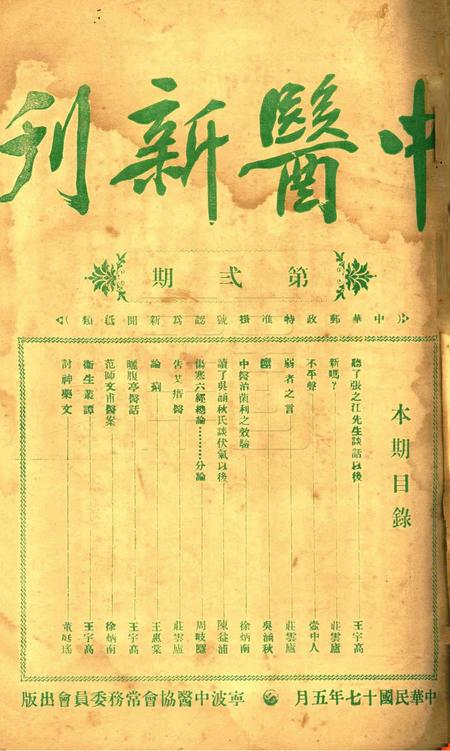 中醫新刊
第弍期
(中華郵政特准掛號認為新聞紙類)
本期目錄
聽了張之江先生談話以後 王宇高
新嗎? 莊雲廬
不平聲 壺中人
弱者之言 莊雲廬
吳涵秋
中醫治菌利之效驗 徐炳南
讀了吳涵秋氏談伏氣以後 陳益浦
傷寒六經總論………分論 周岐隱
告某西醫 莊雲廬
論痢 王惠棠
曬腹亭醫話 王宇高
范師文甫醫案 徐炳南
衞生叢譚 王宇高
討神藥文 董庭瑤
中華民國十七年五月 寧波中醫協會常務委員會出版